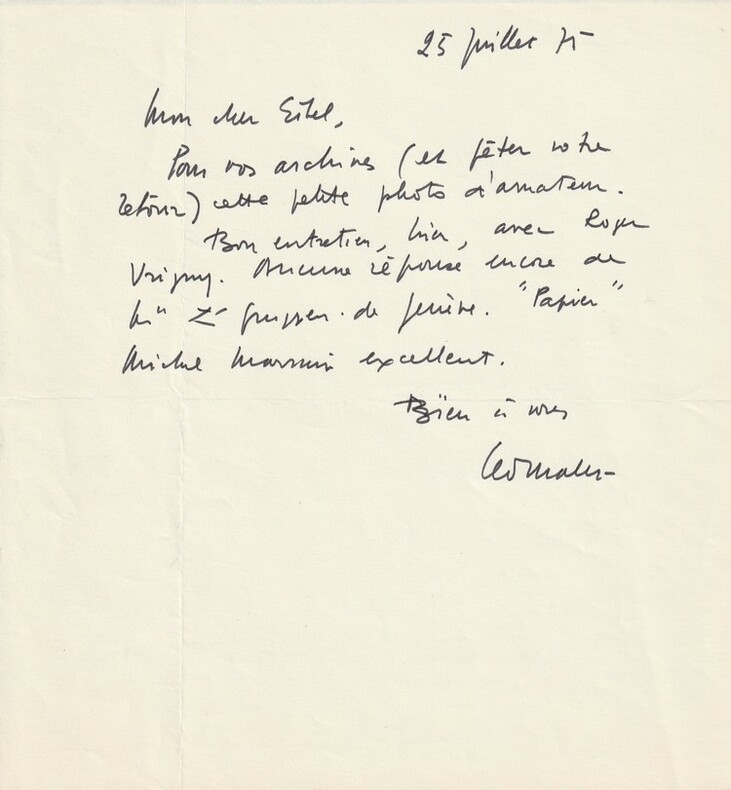 25 juillet 75
Mon cher Eibel,
Pour vos archives (et fêter votre
retour) cette petite photo d'amateur.
Bon entretien, hier, avec Roger
Vrigny. Aucune réponse encore de
de Genève. "Papier"
Michel Marmin excellent.
Bien à vous
Léo Malet